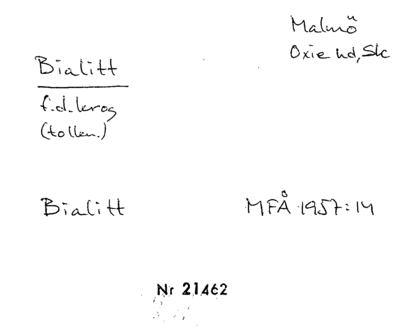 Malmö
Oxie hd, Sk
Bialitt
f.d. krog
(tollkn.)
Bialitt
MFÅ 1957:14
Nr 21462